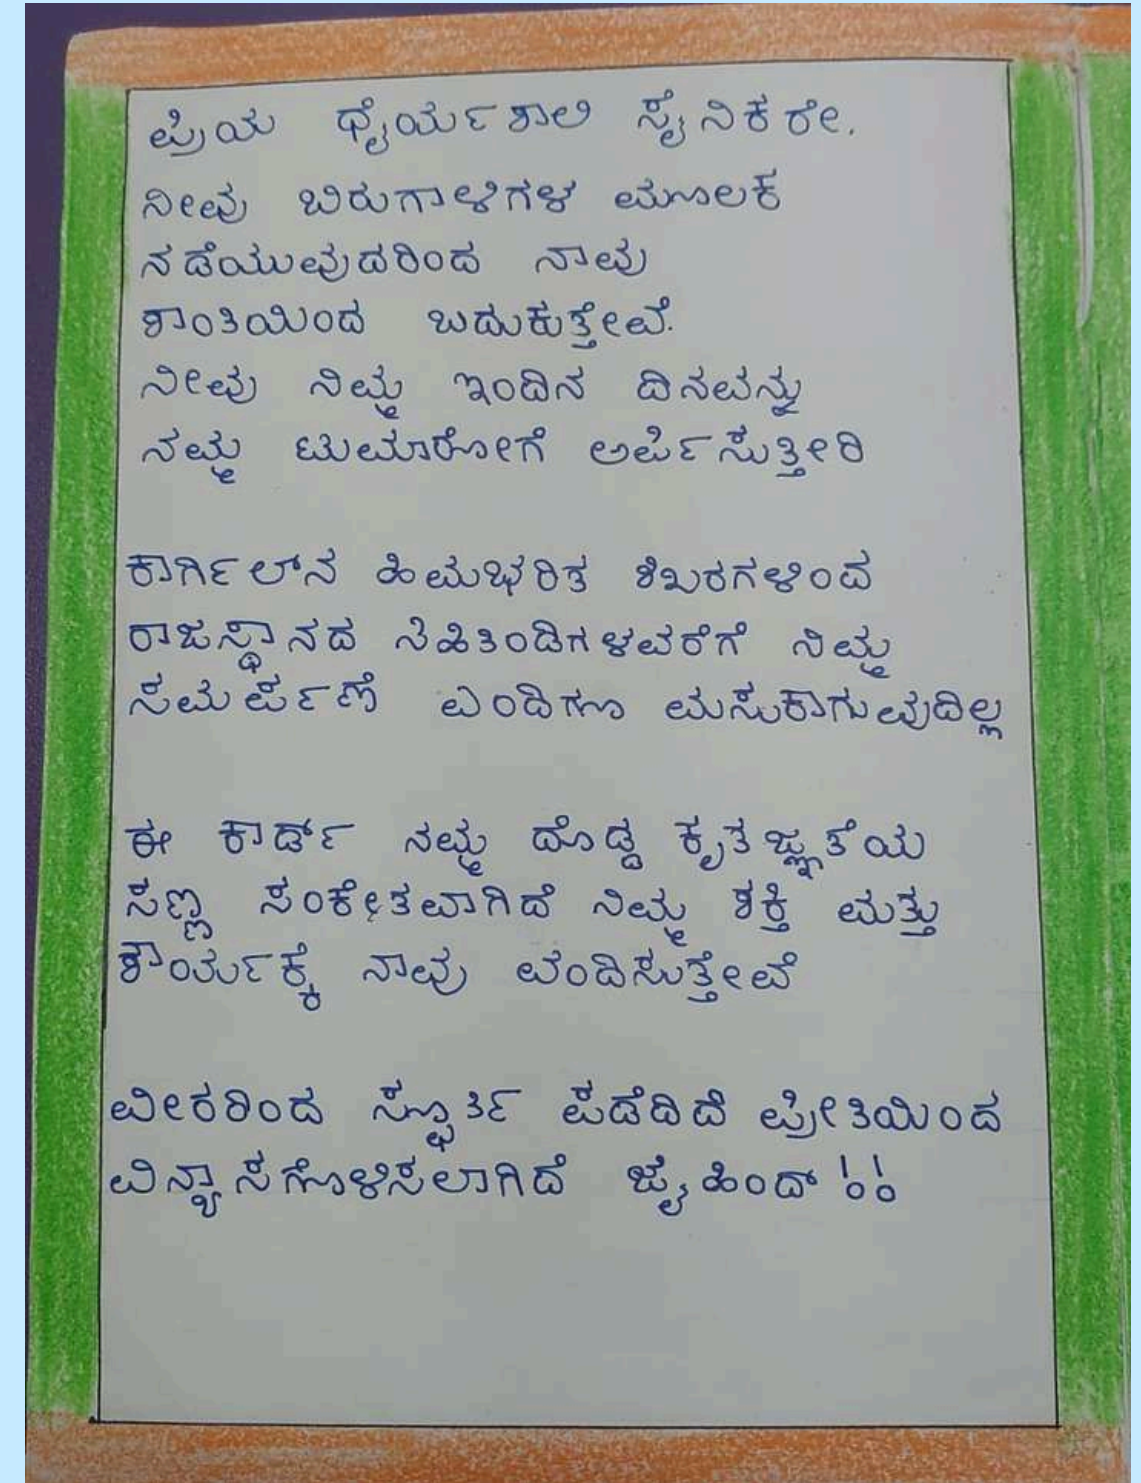 ಪ್ರಿಯ ಧೈರ್ಯಶಾಲಿ ಸೈನಿಕರೇ.
ನೀವು ಬಿರುಗಾಳಿಗಳ ಮೂಲಕ
ನಡೆಯುವುದರಿಂದ ನಾವು
ಶಾಂತಿಯಿಂದ ಬದುಕುತ್ತೇವೆ.
ನೀವು ನಿಮ್ಮ ಇಂದಿನ ದಿನವನ್ನು
ನಮ್ಮ ಟುಮಾರೋಗೆ ಅರ್ಪಿಸುತ್ತೀರಿ
ಕಾರ್ಗಿಲ್‌ನ ಹಿಮಭರಿತ ಶಿಖರಗಳಿಂದ
ರಾಜಸ್ಥಾನದ ಸಿಹಿತಿಂಡಿಗಳವರೆಗೆ ನಿಮ್ಮ
ಸಮರ್ಪಣೆ ಎಂದಿಗೂ ಮಸುಕಾಗುವುದಿಲ್ಲ
ಈ ಕಾರ್ಡ್ ನಮ್ಮ ದೊಡ್ಡ ಕೃತಜ್ಞತೆಯ
ಸಣ್ಣ ಸಂಕೇತವಾಗಿದೆ ನಿಮ್ಮ ಶಕ್ತಿ ಮತ್ತು
ಶೌರ್ಯಕ್ಕೆ ನಾವು ವಂದಿಸುತ್ತೇವೆ
ವೀರರಿಂದ ಸ್ಫೂರ್ತಿ ಪಡೆದಿದೆ ಪ್ರೀತಿಯಿಂದ
ವಿನ್ಯಾಸಗೊಳಿಸಲಾಗಿದೆ ಜೈ ಹಿಂದ್ !!